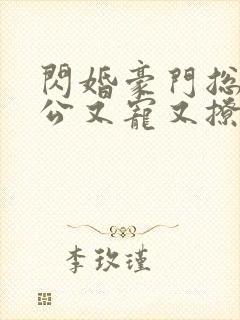 閃婚豪門总
公又寵又撩
李玫瑾